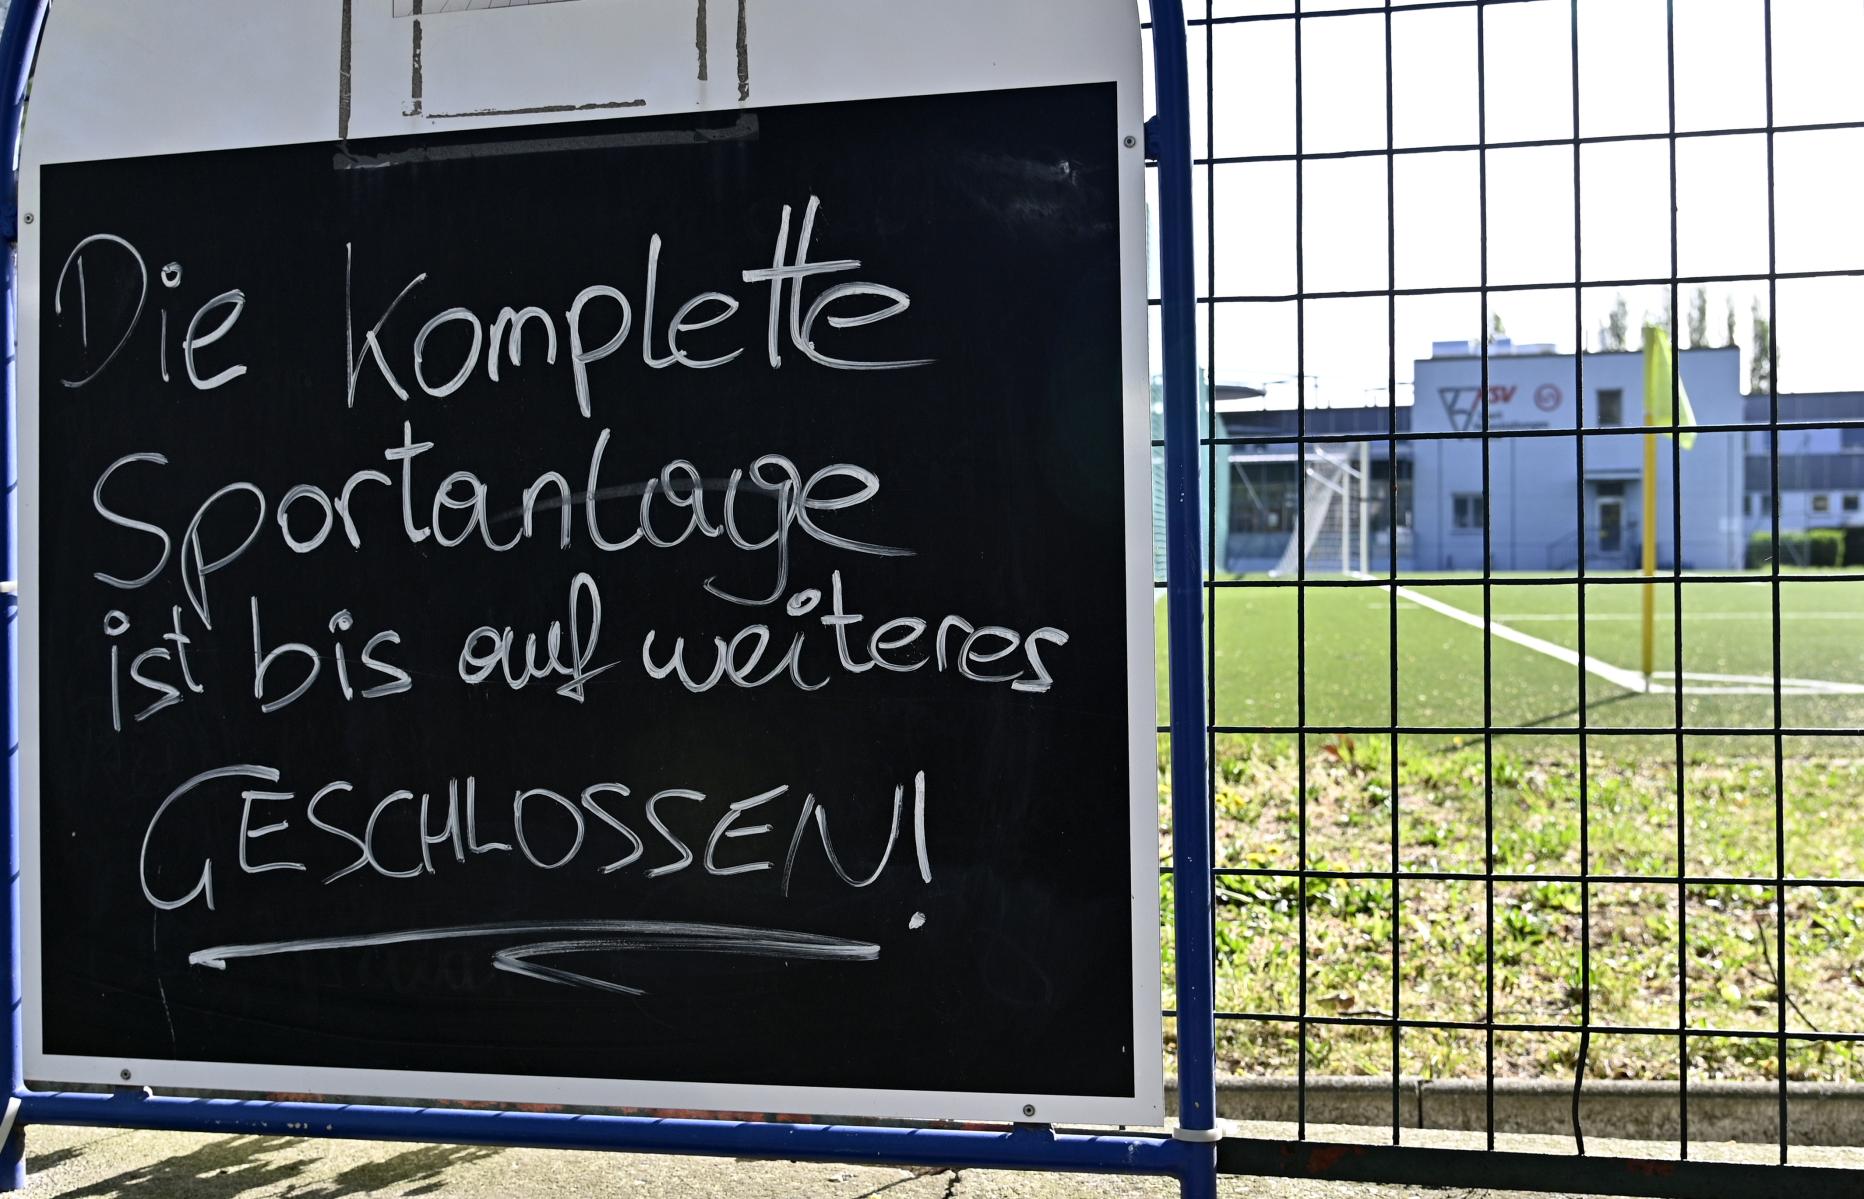 Die komplette
Sportanlage
ist bis auf weiteres
GESCHLOSSEN!